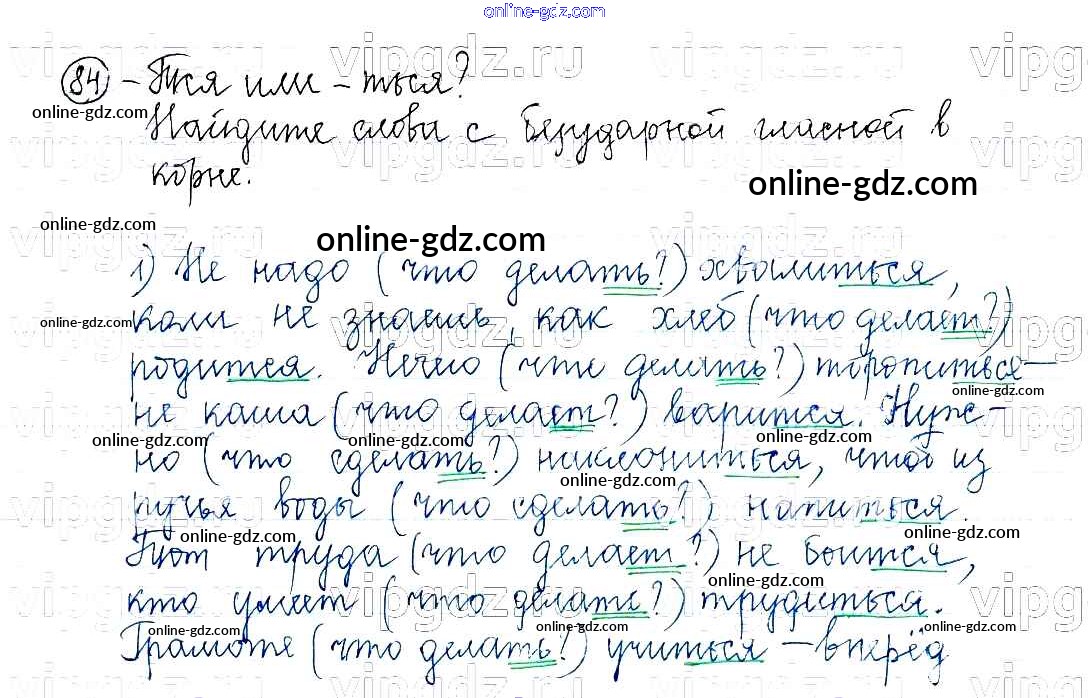 online-gdz.com
84 -Тся или -ться?
online-gdz.com
Найдите слова с безударной гласной в
корне.
online-gdz.com
online-gdz.com
online-gdz.com
1) Не надо (что делать?) хвалиться,
online-gdz.com
коли не знаешь, как хлеб (что делает?)
родится. Нечего (что делать?) торопиться—
online-gdz.com
не каша (что делает?) варится. Нуж-
online-gdz.com
online-gdz.com
но (что сделать?) наклониться, чтоб из
online-gdz.com
ручья воды (что сделать?) напиться.
online-gdz.com
online-gdz.com
Тот труда (что делает?) не боится,
online-gdz.com
кто умеет (что делать?) трудиться.
online-gdz.com
online-gdz.com
online-gdz.com
Грамоте (что делать?) учиться — вперёд
vipgdz.ru